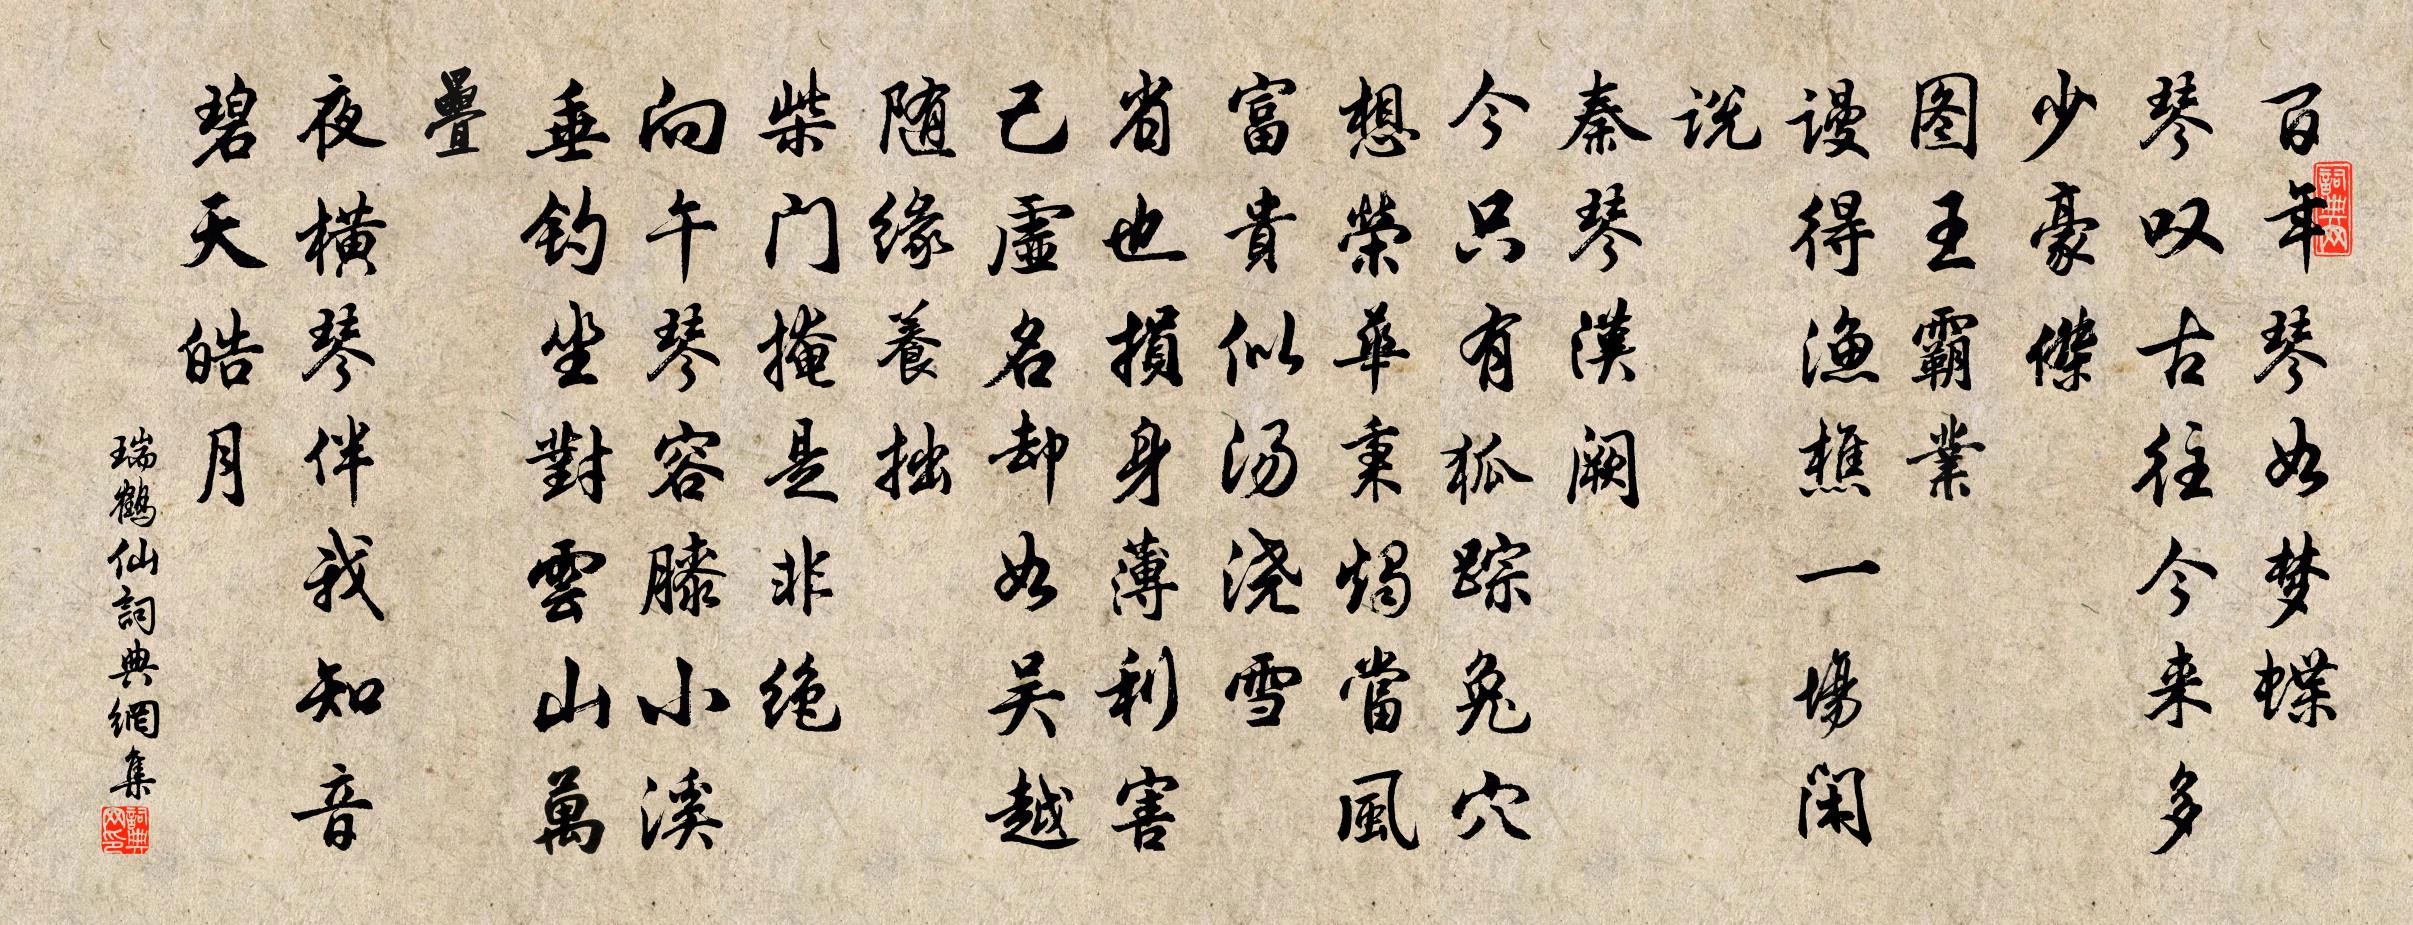 百年琴如梦蝶
琴叹古往今来多
少豪傑
图王霸業
谩得渔樵一場闲
说
秦琴漢阙
今只有狐踪兔穴
想榮華秉烛當風
富貴似汤浇雪
省也損身薄利害
己虚名却如吴越
随缘養拙
柴门掩是非绝
向午琴容膝小溪
垂钓坐對雲山萬
疊
夜横琴伴我知音
碧天皓月
瑞鶴仙詞典網集
詞典网
詞典网印